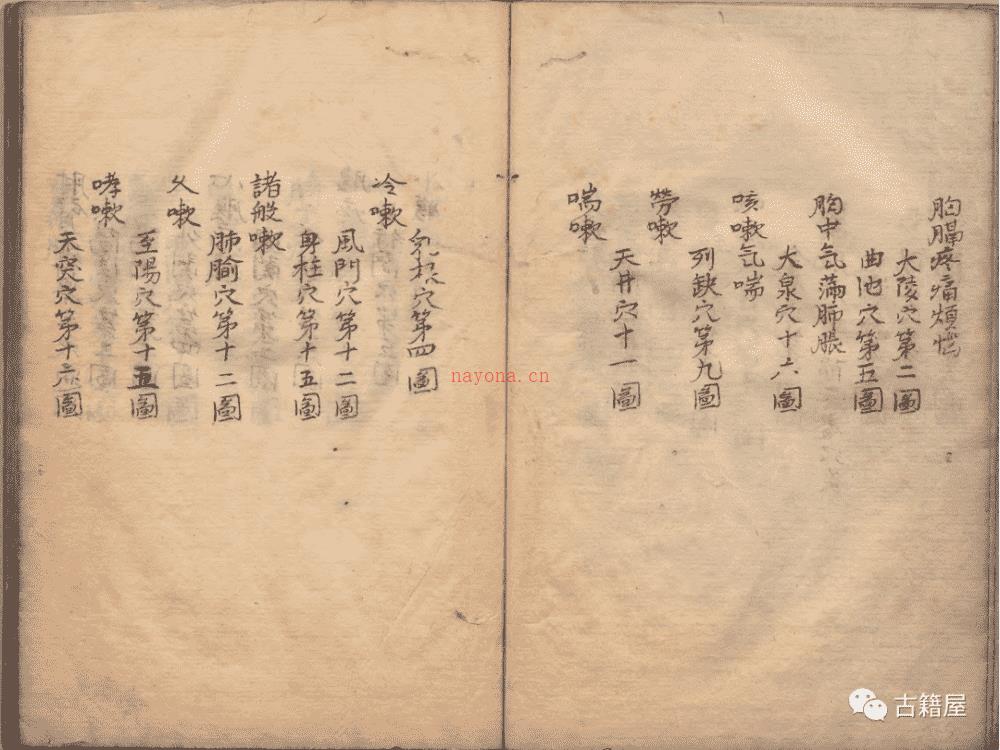 胸膈疼痛煩悩
大陵穴第二圖
曲池穴第五圖
胸中気滿肺脹
大泉穴十六圖
咳嗽気喘
列缺穴第九圖
勞嗽
天井穴十一圖
喘嗽
乳根穴第四圖
冷嗽
風門穴第十二圖
身柱穴第十五圖
諸般嗽
肺腧穴第十二圖
久嗽
至陽穴第十五圖
哮嗽
天突穴第十六圖
nayona.cn
古籍屋